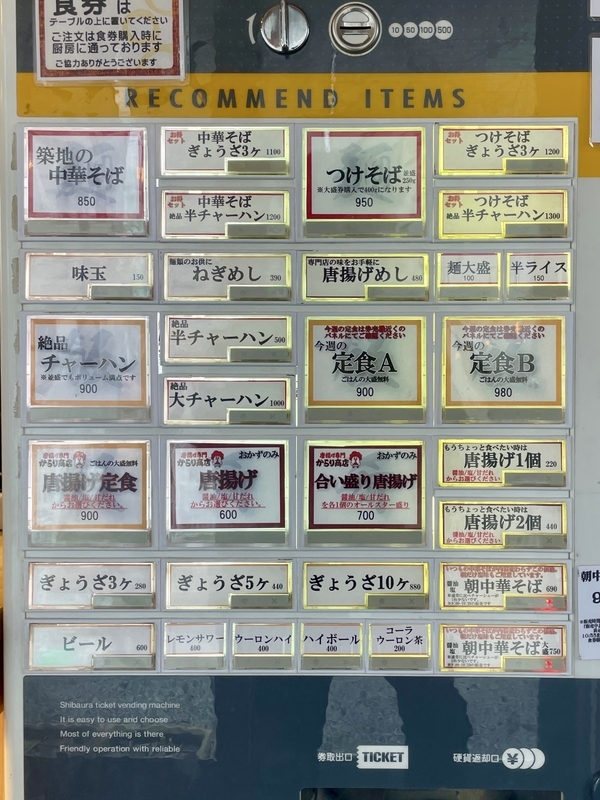 食券は
テーブルの上に置いてください
ご注文は食券購入時に
厨房に通っております
ご協力ありがとうございます
10 50 100 500
RECOMMEND ITEMS
築地の
中華そば
850
お得
セット
中華そば
ぎょうざ3ヶ 1100
つけそば 並盛
250g
※大盛券購入で400gになります
950
お得
セット
つけそば
ぎょうざ3ヶ 1200
お得
セット
中華そば
絶品 半チャーハン 1200
お得
セット
つけそば
絶品 半チャーハン 1300
味玉 150
麺類のお供に
ねぎめし 390
専門店の味をお手軽に
唐揚げめし 480
麺大盛
100
半ライス
150
絶品
チャーハン
※並盛でもボリューム満点です
900
絶品
半チャーハン 500
今週の定食は券売機近くの
パネルにてご確認ください
今週の
定食A
ごはんの大盛無料
900
今週の定食は券売機近くの
パネルにてご確認ください
今週の
定食B
ごはんの大盛無料
980
絶品
大チャーハン 1000
唐揚げ専門
からり商店
ごはんの大盛無料
唐揚げ定食
醤油/塩/甘だれ
からお選びください。
900
唐揚げ専門
からり商店
おかずのみ
唐揚げ
醤油/塩/甘だれ
からお選びください。
600
唐揚げ専門
からり商店
おかずのみ
合い盛り唐揚げ
醤油/塩/甘だれ
を各1個のオールスター盛り
700
もうちょっと食べたい時は
唐揚げ1個 220
醤油/塩/甘だれ
からお選びください
もうちょっと食べたい時は
唐揚げ2個 440
醤油/塩/甘だれ
からお選びください
ぎょうざ3ヶ 280
ぎょうざ5ヶ 440
ぎょうざ10ヶ 880
醤油
塩
朝中華そば 690
ビール 600
レモンサワー
400
ウーロンハイ
400
ハイボール
400
コーラ
ウーロン茶
200
醤油
塩
朝中華そば 大盛 750
朝中
Shibaura ticket vending machine
It is easy to use and choose
Most of everything is there
Friendly operation with reliable
券取出口 TICKET
硬貨返却口